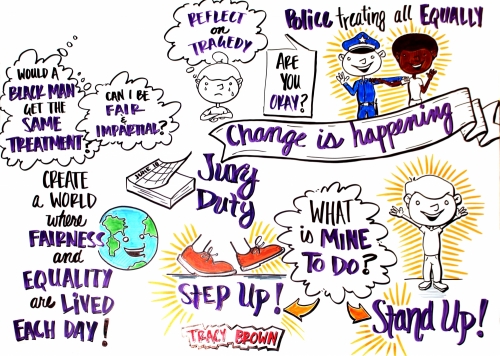 REFLECT
on
TRAGEDY
Police treating all EQUALLY
ARE
YOU
OKAY?
WOULD A
BLACK MAN
GET THE
SAME
TREATMENT?
CAN I BE
FAIR
&
IMPARTIAL?
Change is happening
JUNE 18
Jury
Duty
CREATE
A WORLD
where
FAIRNESS
and
EQUALITY
are LIVED
EACH DAY!
WHAT
is MINE
TO DO?
STEP UP!
Stand Up!
TRACY BROWN